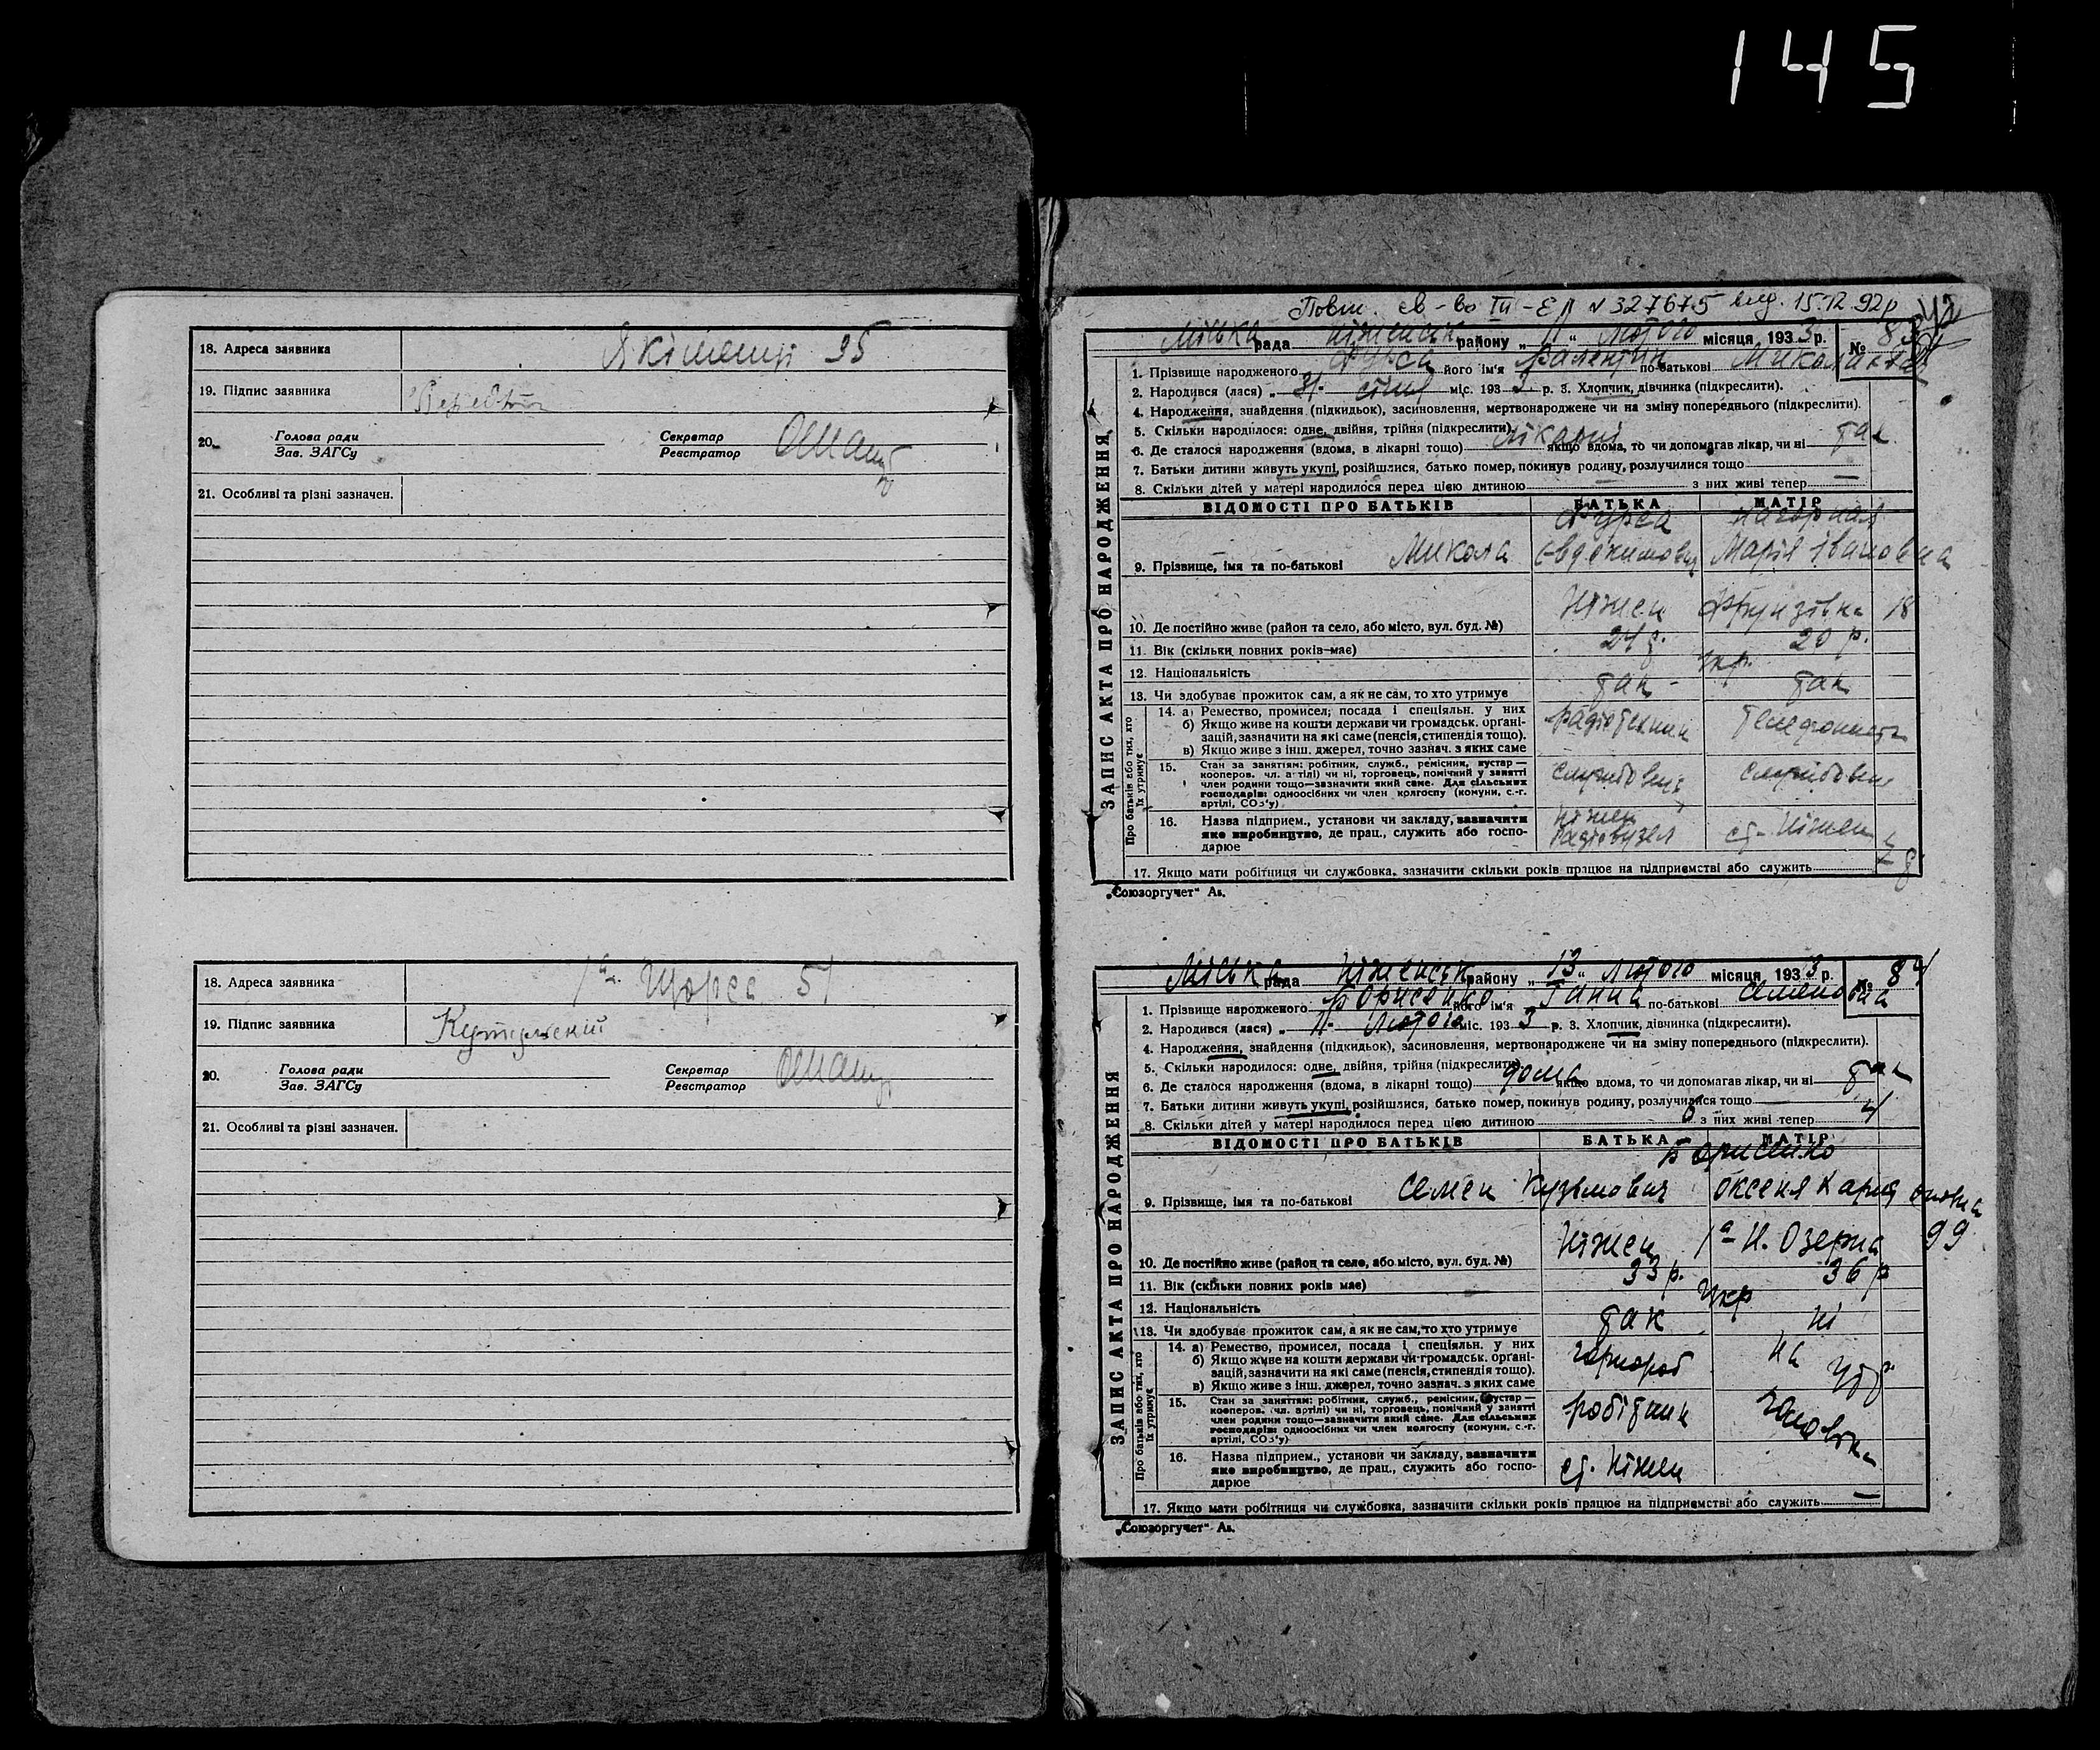 145
18. Адреса заявника Якіменці 35
19. Підпис заявника
20. Голова ради Секретар
Зав. ЗАГСу Реєстратор
21. Особливі та різні зазначен.
18. Адреса заявника 1а Щорса 51
19. Підпис заявника
20. Голова ради Секретар
Зав. ЗАГСу Реєстратор
21. Особливі та різні зазначен.
Повт. св-во III-ЕЛ № 327675 выд. 15.12.92р
ЗАПИС АКТА ПРО НАРОДЖЕННЯ
Міська рада Ніженськ району „11“ Лютого місяця 1933 р. № 83
1. Прізвище народженого Фурса його ім'я Валентин по-батькові Миколаєвич
2. Народився (лася) „31 січня міс. 1933 р. 3. Хлопчик, дівчинка (підкреслити).
4. Народження, знайдення (підкидьок), засиновлення, мертвонароджене чи на зміну попереднього (підкреслити).
5. Скільки народилося: одне, двійня, трійня (підкреслити)
6. Де сталося народження (вдома, в лікарні тощо) лікарні якщо вдома, то чи допомагав лікар, чи ні так
7. Батьки дитини живуть укупі, розійшлися, батько помер, покинув родину, розлучилися тощо
8. Скільки дітей у матері народилося перед цією дитиною — з них живі тепер —
ВІДОМОСТІ ПРО БАТЬКІВ БАТЬКА МАТІР
Фурса Нагорная
9. Прізвище, імя та по-батькові Микола Євдокимович Марія Івановна
10. Де постійно живе (район та село, або місто, вул. буд. №) Ніжен Фрунзівка 18
11. Вік (скільки повних років має) 24 р. 20 р.
12. Національність Укр.
13. Чи здобуває прожиток сам, а як не сам, то хто утримує так так
Про батьків або тих, хто їх утримує
14. а) Ремество, промисел, посада і спеціяльн. у них радіотехник телефонистк
б) Якщо живе на кошти держави чи громадськ. орґані-
зацій, зазначити на які саме (пенсія, стипендія тощо).
в) Якщо живе з інш. джерел, точно зазнач. з яких саме
15. Стан за заняттям: робітник, служб., ремісник, кустар —
кооперов. чл. артілі) чи ні, торговець, помічний у занятті
член родини тощо—зазначити який саме. Для сільських
господарів: одноосібних чи член колгоспу (комуни, с.-г.
артілі, СОЗ'у) службовець службовець
16. Назва підприєм., установи чи закладу, зазначити
яке виробництво, де прац., служить або госпо-
дарює Ніжен радіовузел ст. Ніжен
17. Якщо мати робітниця чи службовка, зазначити скільки років працює на підприємстві або служить
„Союзоргучет“ Ав.
ЗАПИС АКТА ПРО НАРОДЖЕННЯ
Міська рада Ніженськ району „13“ Лютого місяця 1933 р. № 84
1. Прізвище народженого Борисенко його ім'я Ганна по-батькові Семеновна
2. Народився (лася) „11 Лютого міс. 1933 р. 3. Хлопчик, дівчинка (підкреслити).
4. Народження, знайдення (підкидьок), засиновлення, мертвонароджене чи на зміну попереднього (підкреслити).
5. Скільки народилось: одне, двійня, трійня (підкреслити)
6. Де сталося народження (вдома, в лікарні тощо) дома якщо вдома, то чи допомагав лікар, чи ні так
7. Батьки дитини живуть укупі, розійшлися, батько помер, покинув родину, розлучилися тощо
8. Скільки дітей у матері народилося перед цією дитиною 6 з них живі тепер 4
ВІДОМОСТІ ПРО БАТЬКІВ БАТЬКА МАТІР
Борисенко
9. Прізвище, імя та по-батькові Семен Кузьмович Оксеня
10. Де постійно живе (район та село, або місто, вул. буд. №) Ніжен 1а Н. Озерна 99
11. Вік (скільки повних років має) 33 р. 36 р
12. Національність Укр
13. Чи здобуває прожиток сам, а як не сам, то хто утримує так ні
Про батьків або тих, хто їх утримує
14. а) Ремество, промисел, посада і спеціяльн. у них чорнороб на утр
б) Якщо живе на кошти держави чи громадськ. орґані-
зацій, зазначити на які саме (пенсія, стипендія тощо).
в) Якщо живе з інш. джерел, точно зазнач. з яких саме
15. Стан за заняттям: робітник, служб., ремісник, кустар —
кооперов. чл. артілі) чи ні, торговець, помічний у занятті
член родини тощо—зазначити який саме. Для сільських
господарів: одноосібних чи член колгоспу (комуни, с.-г.
артілі, СОЗ'у) робітник чоловіка
16. Назва підприєм., установи чи закладу, зазначити
яке виробництво, де прац., служить або госпо-
дарює ст. Ніжен
17. Якщо мати робітниця чи службовка, зазначити скільки років працює на підприємстві або служить —
„Союзоргучет“ Ав.